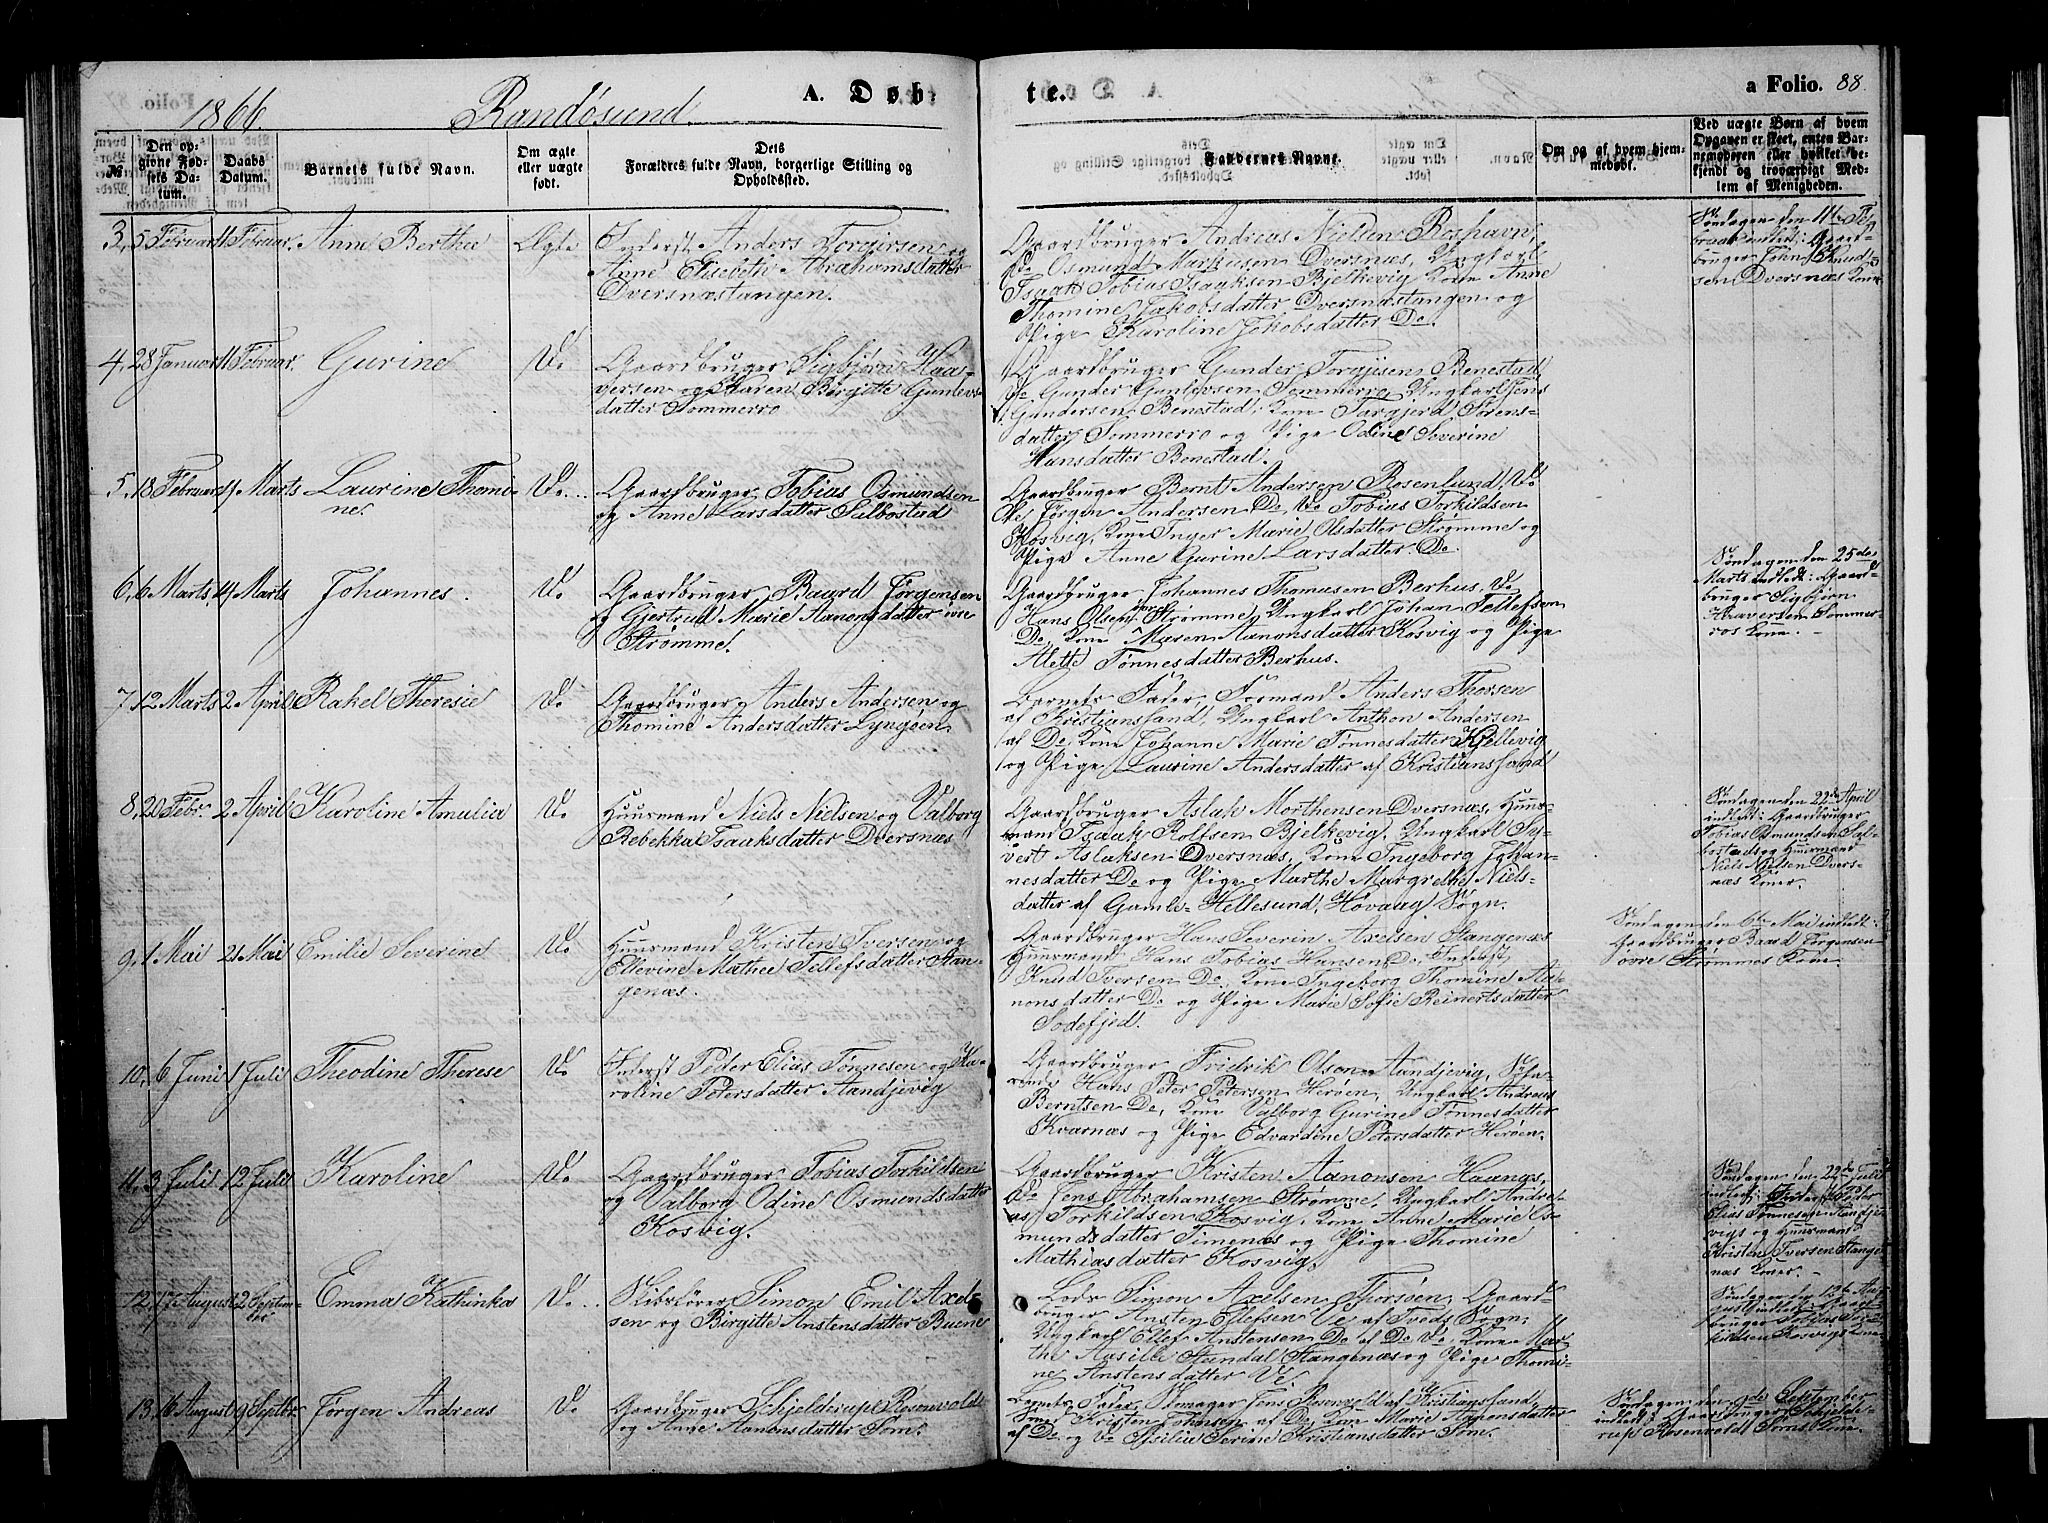 1866.
Randøsund.
A. Døb-
te.
a Folio. 88.
№
Den op-
givne Fød-
sels Da-
tum.
Daabs
Datum.
Barnets fulde Navn.
Om ægte
eller uægte
født.
Dets
Forældres fulde Navn, borgerlige Stilling og
Opholdssted.
Faddernes Navne.
Om og af hvem hjem-
medøbt.
Ved uægte Børn af hvem
Opgaven er skeet, enten Bar-
nemoderen eller hvilket be-
kjendt og troværdigt Med-
lem af Menigheden.
3, 5 Februar 11 Februar. Anne Berthea Ægte
Inderst Anders Torgirsen og
Anne Elisebeth Abrahamsdatter
Dversnæstangen.
Gaardbruger Andreas Nielsen Roshavn,
Do Osmund Markusen Dversnæs, Ungkarl
Isaak Tobias Isaaksen Bjelkevig Kone Anne
Thomine Jakobsdatter Dversnæstangen og
Pige Karoline Jakobsdatter Do.
Søndagen den 11te Fe-
bruar indledt: Gaard-
bruger John Knud-
sen Dversnæs Kone
4, 28 Januar 11 Februar. Gurine Do
Gaardbruger Sigbjørn Haa-
versen og Karen Birgitte Gunlevs-
datter Sommerro
Gaardbruger Gunder Torgjusen Benestad,
Do Gunder Gunlevsen Sommerro, Ungkarl Jens
Gundersen Benestad, Kone Torgjerd Sørens-
datter Sommerro og Pige Odine Severine
Hansdatter Benestad.
5, 18 Februar 4 Marts Laurine Thomi-
ne. Do
Gaardbruger Tobias Osmundsen
og Anne Larsdatter Sælbostad
Gaardbruger Bernt Andersen Rosenlund, Do
Jørgen Andersen Do, Do Tobias Torkildsen
Kosvig, Kone Inger Marie Olsdatter Strømme og
Pige Anne Gurine Larsdatter Do.
6, 6 Marts, 14 Marts Johannes. Do
Gaardbruger Baard Jørgensen
og Gjertrud Marie Aanonsdatter øvre
Strømme.
Gaardbruger Johannes Thomasen Berhus, Do
Hans Olsen Strømme, Ungkarl Johan Tellefsen
Do, Kone Maren Aanonsdatter Kosvig og Pige
Alette Tønnesdatter Berhus.
Søndagen den 25de
Marts indledt: Gaard-
bruger Sigbjørn
Haaversen Sommer-
ros Kone.
7, 12 Marts 2 April Rakel Theresie Do
Gaardbruger Anders Andersen og
Thomine Andersdatter Lyngøen.
Barnets Fader, Formand Anders Thorsen
af Kristianssand, Ungkarl Anthon Andersen
af Do, Kone Johanne Marie Tønnesdatter Kjellevig
og Pige Laurine Andersdatter af Kristianssand
8, 20 Febr. 2 April Karoline Amalia Do
Huusmand Niels Nielsen og Valborg
Rebekka Isaaksdatter Dversnæs
Gaardbruger Aslak Morthensen Dversnæs, Huus-
mand Isaak Rolfsen Bjelkevig, Ungkarl Sy-
vert Aslaksen Dversnæs, Kone Ingeborg Johan-
nesdatter Do og Pige Marthe Margrethe Niels-
datter af Gamle-Hellesund, Høvaag Sogn.
Søndagen den 22de April
indledt: Gaardbruger
Tobias Osmundsen Sæl-
bostads og Huusmand
Niels Nielsen Dvers-
næs Koner.
9, 1 Mai 21 Mai Emilie Severine Do
Huusmand Kristen Iversen og
Ellevine Mathea Tellefsdatter Stan-
genæs.
Gaardbruger Hans Severin Axelsen Stangenæs
Huusmand Hans Tobias Hansen Do, Inderst
Knud Iversen Do, Kone Ingeborg Thomine Aa-
nonsdatter Do og Pige Marie Sofie Reinertsdatter
Sodefjed.
Søndagen den 6te Mai indledt:
Gaardbruger Baard Jørgensen
øvre Strømmes Kone.
10, 6 Juni 1 Juli Theodine Therese Do
Inderst Peder Elias Tønnesen og Ka-
roline Petersdatter Aandjevig
Gaardbruger Fridrik Olsen Aandjevig,
Hans Peter Petersen Herøen, Ungkarl Andreas
Berntsen Do, Kone Valborg Gurine Tønnesdatter
Kvarnæs og Pige Edvardine Petersdatter Herøen.
11, 3 Juli 12 Juli Karoline Do
Gaardbruger Tobias Torkildsen
og Valborg Odine Osmundsdatter
Kosvig.
Gaardbruger Kristen Aanonsen Haanæs,
Do Jens Abrahamsen Strømme, Ungkarl Andre-
as Torkildsen Kosvig, Kone Anne Marie Os-
mundsdatter Timenæs og Pige Thomine
Mathiasdatter Kosvig.
Søndagen den 29de Juli
indledt: Inderst Peder
Elias Tønnesen Aandje-
vigs og Huusmand
Kristen Iversen Stange-
næs Koner.
12, 17 August 2 Septem-
ber Emma Kathinka Do
Skibsfører Simon Emil Axel-
sen og Birgitte Anstensdatter Buene
Lods Simon Axelsen Thorsøen, Gaard-
bruger Ansten Ellefsen Ve af Tveds Sogn,
Ungkarl Ellef Anstensen Do af Do, Kone Mar-
the Aasille Standal Stangenæs og Pige Thomi-
ne Anstensdatter Ve.
Søndagen den 12te Au-
gust indledt: Gaard-
bruger Tobias Tor-
kildsen Kosvigs Kone
13, 16 August 9 Septbr. Jørgen Andreas Do
Gaardbruger Schjelderup Rosenvold
og Anne Aanonsdatter Som.
Barnets Fader, Skomager Jens Rosenvold af Kristianssand,
Kristen Johnsen af Do, Kone Marie Aanonsdatter
af Do og Do Assilia Serine Kristiansdatter Som.
Søndagen den 9de September
indledt: Gaardbruger Schjelde-
rup Rosenvold Soms Kone.